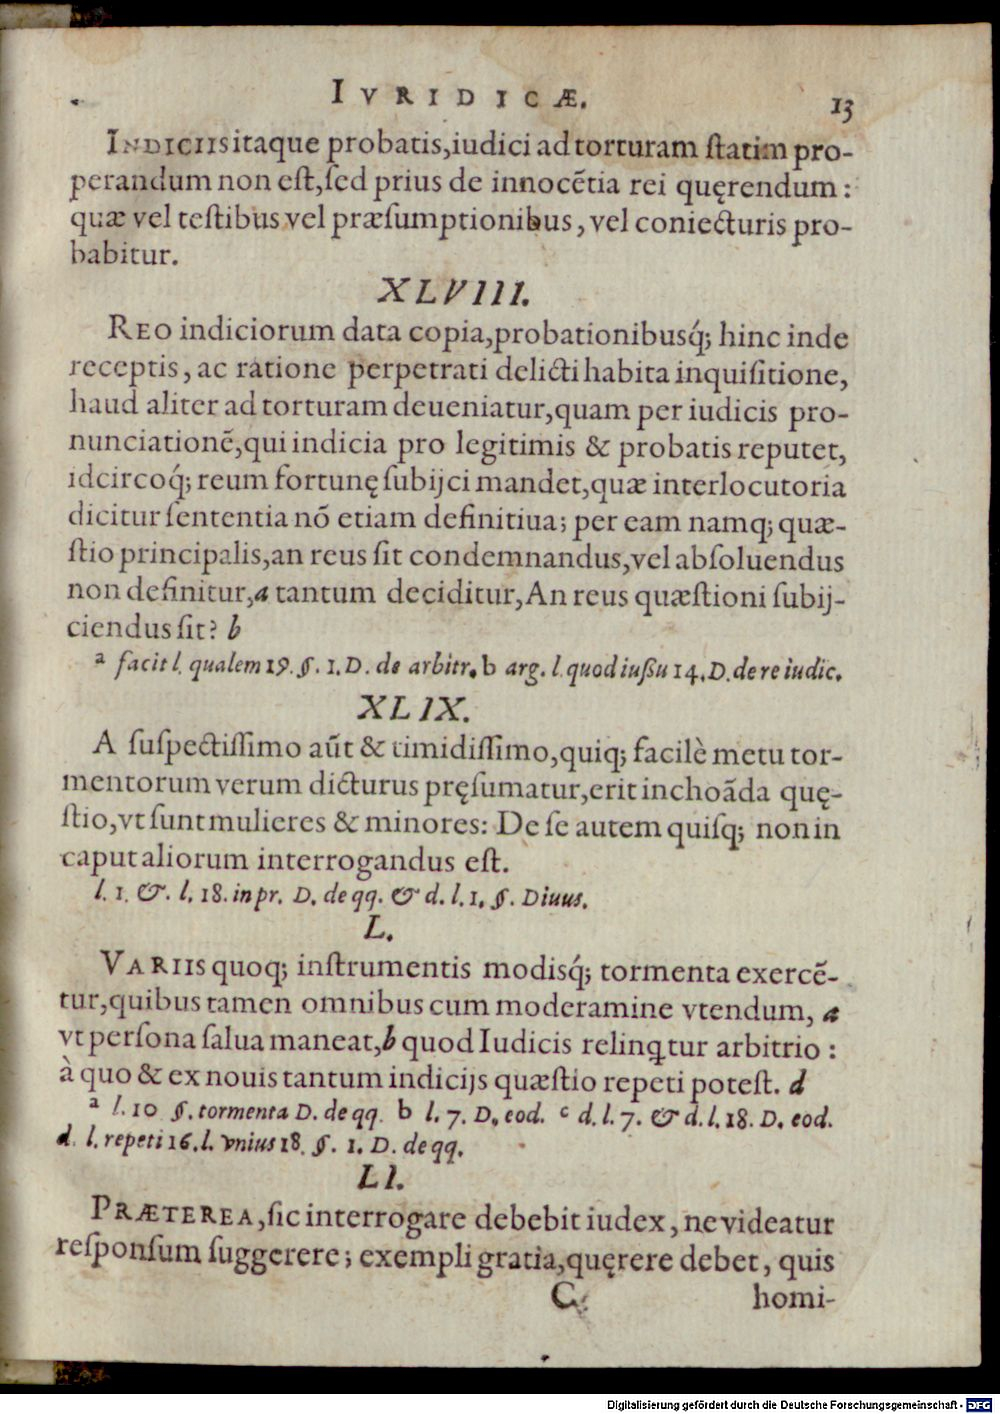 IVRIDICÆ. 13
INDICIIS itaque probatis, iudici ad torturam ſtatim pro-
perandum non eſt, ſed prius de innocẽtia rei quęrendum:
quæ vel teſtibus vel præſumptionibus, vel coniecturis pro-
babitur.
XLVIII.
REO indiciorum data copia, probationibusq́; hinc inde
receptis, ac ratione perpetrati delicti habita inquiſitione,
haud aliter ad torturam deueniatur, quam per iudicis pro-
nunciationẽ, qui indicia pro legitimis & probatis reputet,
idcircoq́; reum fortunę ſubijci mandet, quæ interlocutoria
dicitur ſententia nõ etiam definitiua; per eam namq; quæ-
ſtio principalis, an reus ſit condemnandus, vel abſoluendus
non definitur, a tantum deciditur, An reus quæſtioni ſubij-
ciendus ſit? b
a facit l. qualem 19. §. 1. D. de arbitr. b arg. l. quod iußu 14. D. de re iudic.
XLIX.
A ſuſpectiſſimo aũt & timidiſſimo, quiq; facilè metu tor-
mentorum verum dicturus pręſumatur, erit inchoãda quę-
ſtio, vt ſunt mulieres & minores: De ſe autem quiſq; non in
caput aliorum interrogandus eſt.
l. 1. &. l. 18. in pr. D. de qq. & d. l. 1. §. Diuus.
L.
VARIIS quoq; inſtrumentis modisq́; tormenta exercẽ-
tur, quibus tamen omnibus cum moderamine vtendum, a
vt perſona ſalua maneat, b quod Iudicis relinꝗtur arbitrio:
à quo & ex nouis tantum indicijs quæſtio repeti poteſt. d
a l. 10 §. tormenta D. de qq. b l. 7. D. eod. c d. l. 7. & d. l. 18. D. eod.
d. l. repeti 16. l. vnius 18. §. 1. D. de qq.
LI.
PRÆTEREA, ſic interrogare debebit iudex, ne videatur
reſponſum ſuggerere; exempli gratia, quęrere debet, quis
C homi-
Digitalisierung gefördert durch die Deutsche Forschungsgemeinschaft - DFG